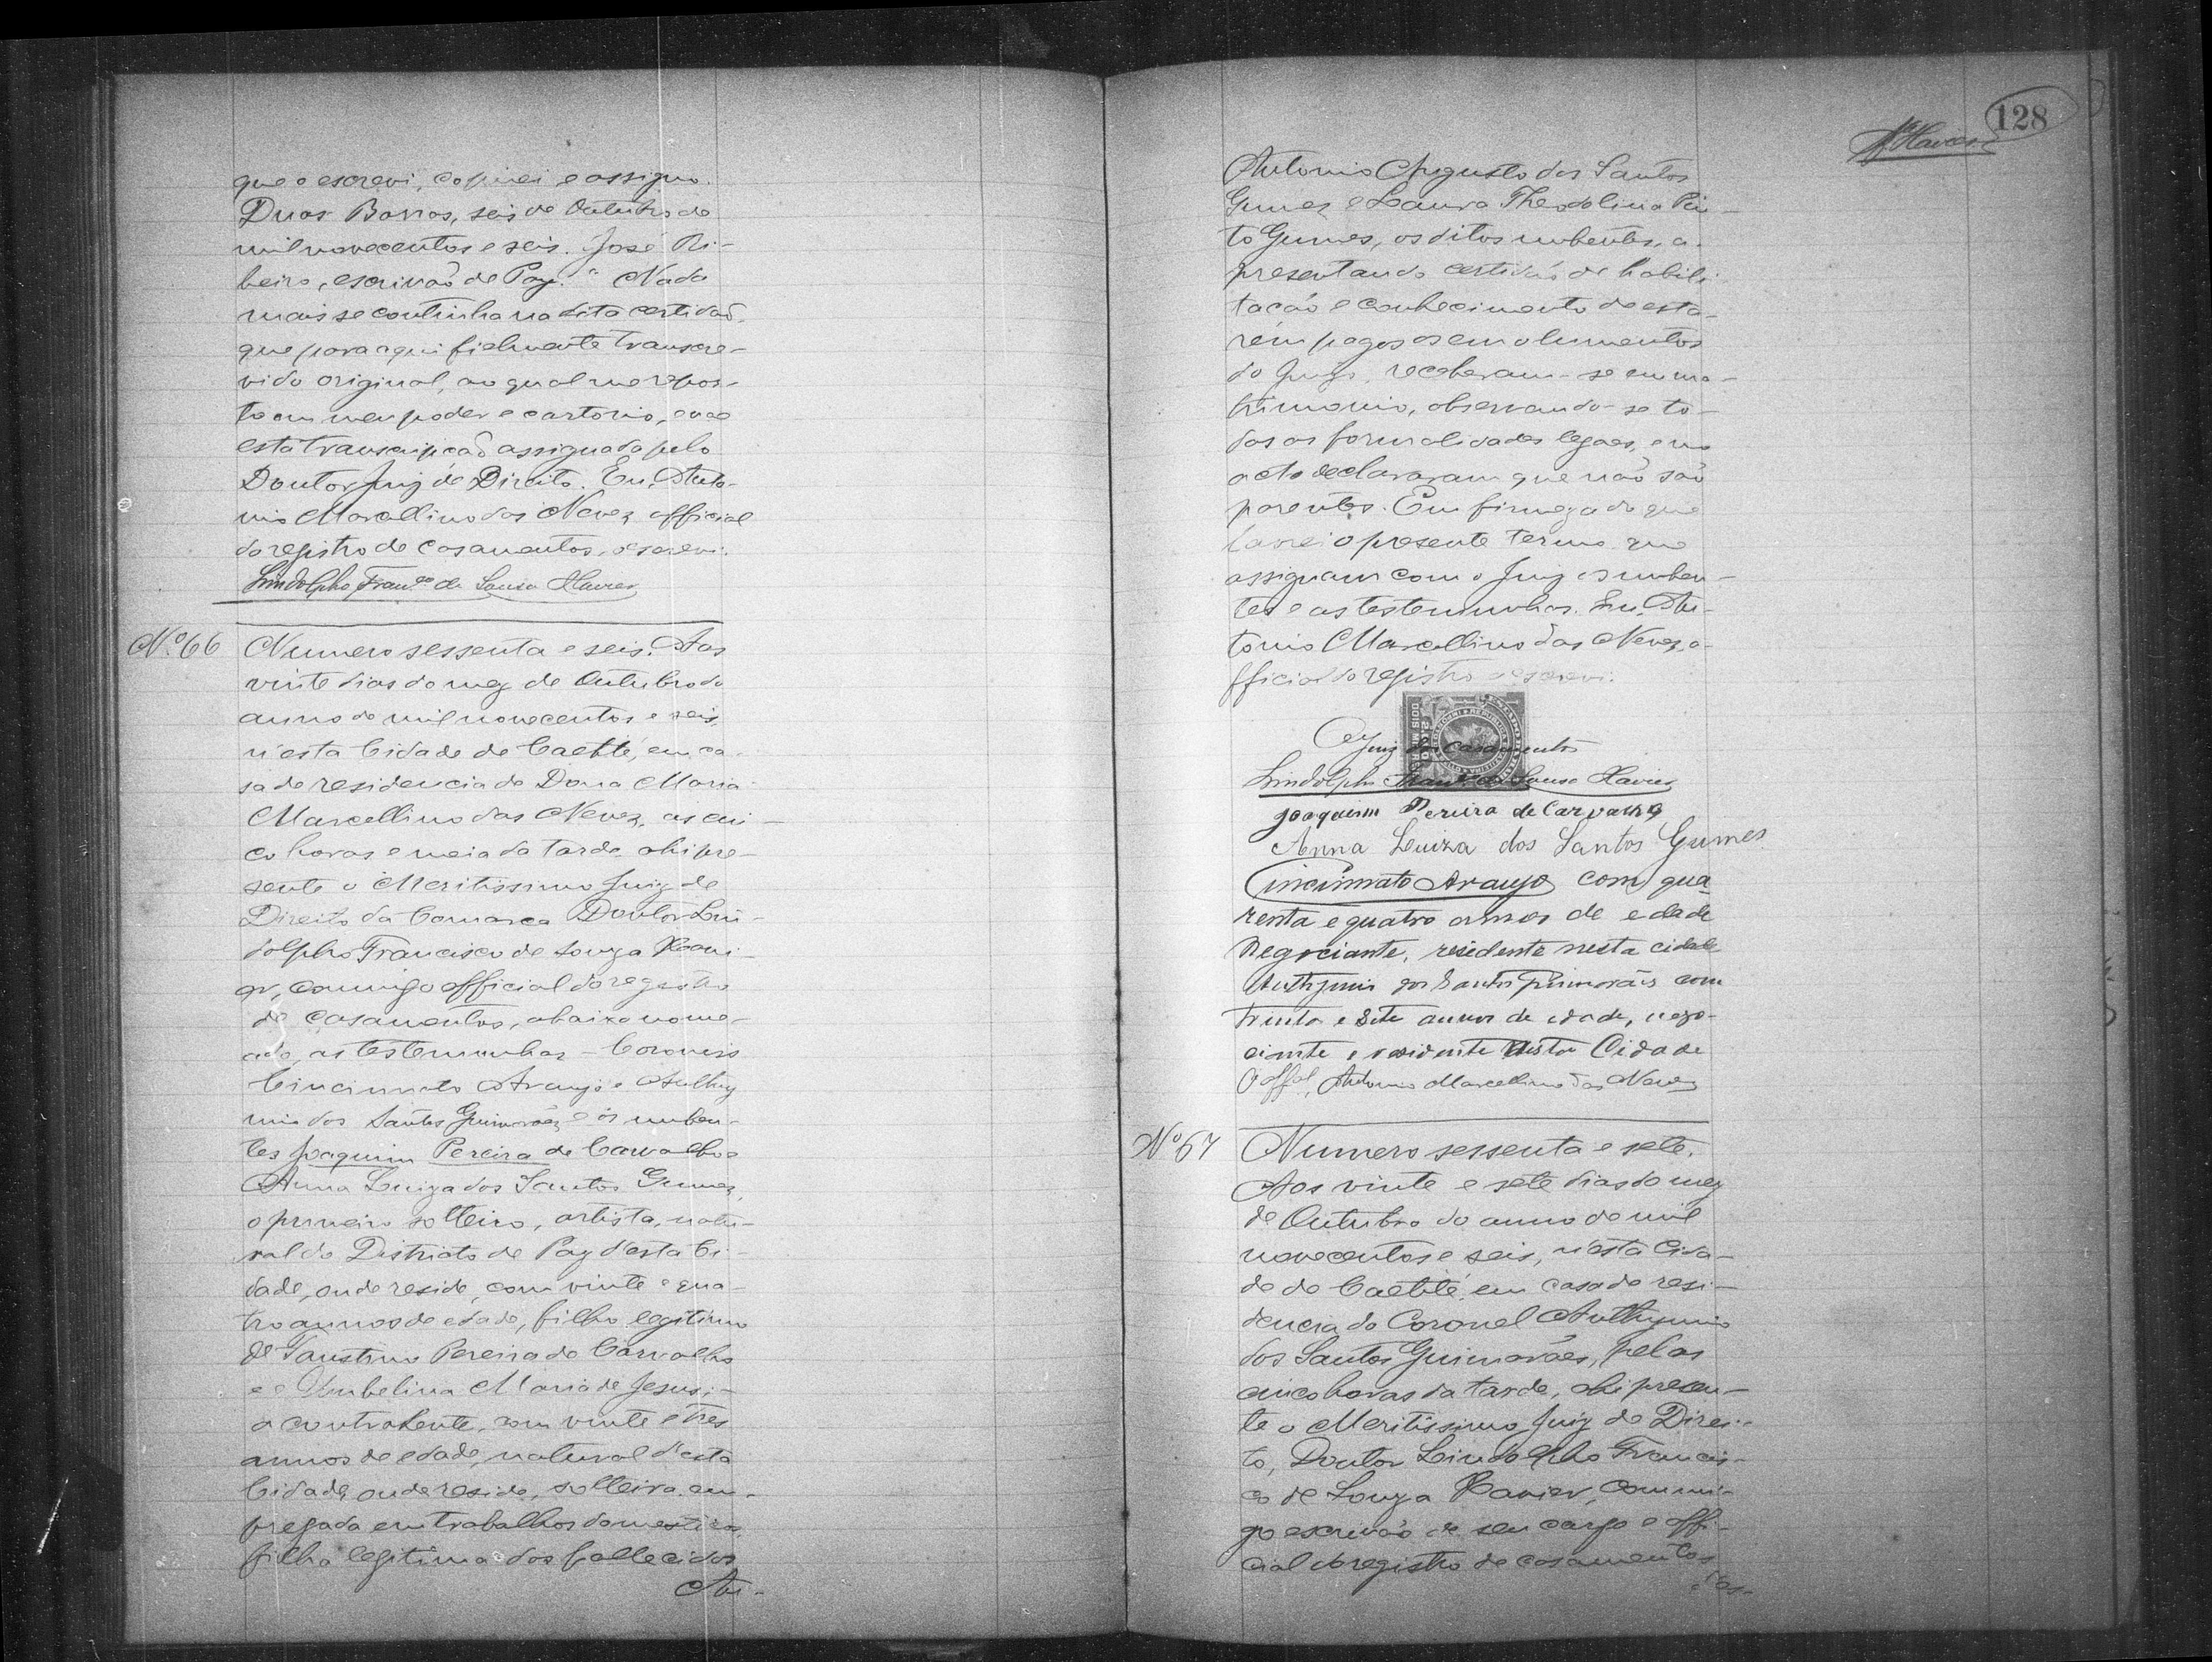 que o escrevi, copiei e assigno.
Duas Barras, seis de Outubro de
mil novecentos e seis. José Ri-
beiro, escrivão de Paz." Nada
mais se continha na dita certidaõ,
que para aqui fielmente transcre-
vi do original, ao qual me repor-
to em meu poder e cartorio, e vae
esta transcripçaõ assignada pelo
Doutor Juiz de Direito. Eu, Anto-
nio Marcellino das Neves, official
do registro de casamentos, o escrevi.
Lindolpho Franco de Sousa Xavier
Nº 66 Numero sessenta e seis. Aos
vinte dias do mez de Outubro do
anno de mil novecentos e seis,
n'esta Cidade de Caetité, em ca-
sa de residencia de Dona Maria
Marcellino das Neves, as cin-
co horas e meia da tarde, ahi pre-
sente o Meritissimo Juiz de
Direito da Comarca Doutor Lin-
dolpho Francisco de Souza Xavi-
er, comigo official do registro
de casamentos, abaixo nome-
ado, as testemunhas - Coroneis
Cincinnato Araujo e Anthy
mio dos Santos Guimarães e os nuben-
tes Joaquim Pereira de Carvalho e
Anna Luiza dos Santos Gumes,
o primeiro solteiro, artista, natu-
ral do Districto de Paz d'esta Ci-
dade, onde reside, com vinte e qua-
tro annos de edade, filho legitimo
de Faustino Pereira de Carvalho
e Umbelina Maria de Jesus; -
a contrahente, com vinte e tres
annos de edade, natural d'esta
Cidade, onde reside, solteira, em-
pregada em trabalhos domesticos,
filha legitima dos fallecidos
An-
128
Antonio Augusto dos Santos
Gumes e Laura Theodolina Pin-
to Gumes, os ditos nubentes, a-
presentando certidão de habili-
tação e conhecimento de esta-
rem pagos os emolumentos
do Juizo, receberam-se em ma-
trimonio, observando-se to-
das as formalidades legaes, e no
acto declararam que não são
parentes. Em firmeza do que
lavrei o presente termo que
assignam com o Juiz os nuben-
tes e as testemunhas. Eu, An-
tonio Marcellino das Neves, o-
fficial do registro o escrevi.
Juiz dos Casamentos
Lindolpho Franco de Sousa Xavier
Joaquim Pereira de Carvalho
Anna Luiza dos Santos Gumes
Cincinnato Araujo com qua-
renta e quatro annos de edade
Negociante, residente nesta cidade
Anthymio dos Santos Guimarães com
trinta e sete annos de idade, nego-
ciante e residente nesta Cidade
O offal, Antonio Marcellino das Neves
Nº 67 Numero sessenta e sete.
Aos vinte e sete dias do mez
de Outubro do anno de mil
novecentos e seis, n'esta Cida-
de de Caetité, em casa de resi-
dencia do Coronel Anthymio
dos Santos Guimarães, pelas
cinco horas da tarde, ahi presen-
te o Meritissimo Juiz de Direi-
to, Doutor Lindolpho Francis-
co de Souza Xavier, commi-
go escrivão de seu cargo e offi-
cial do registro de casamentos